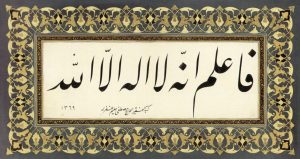 فاعلم انّه لا اله الّا الله
١٣٦٩